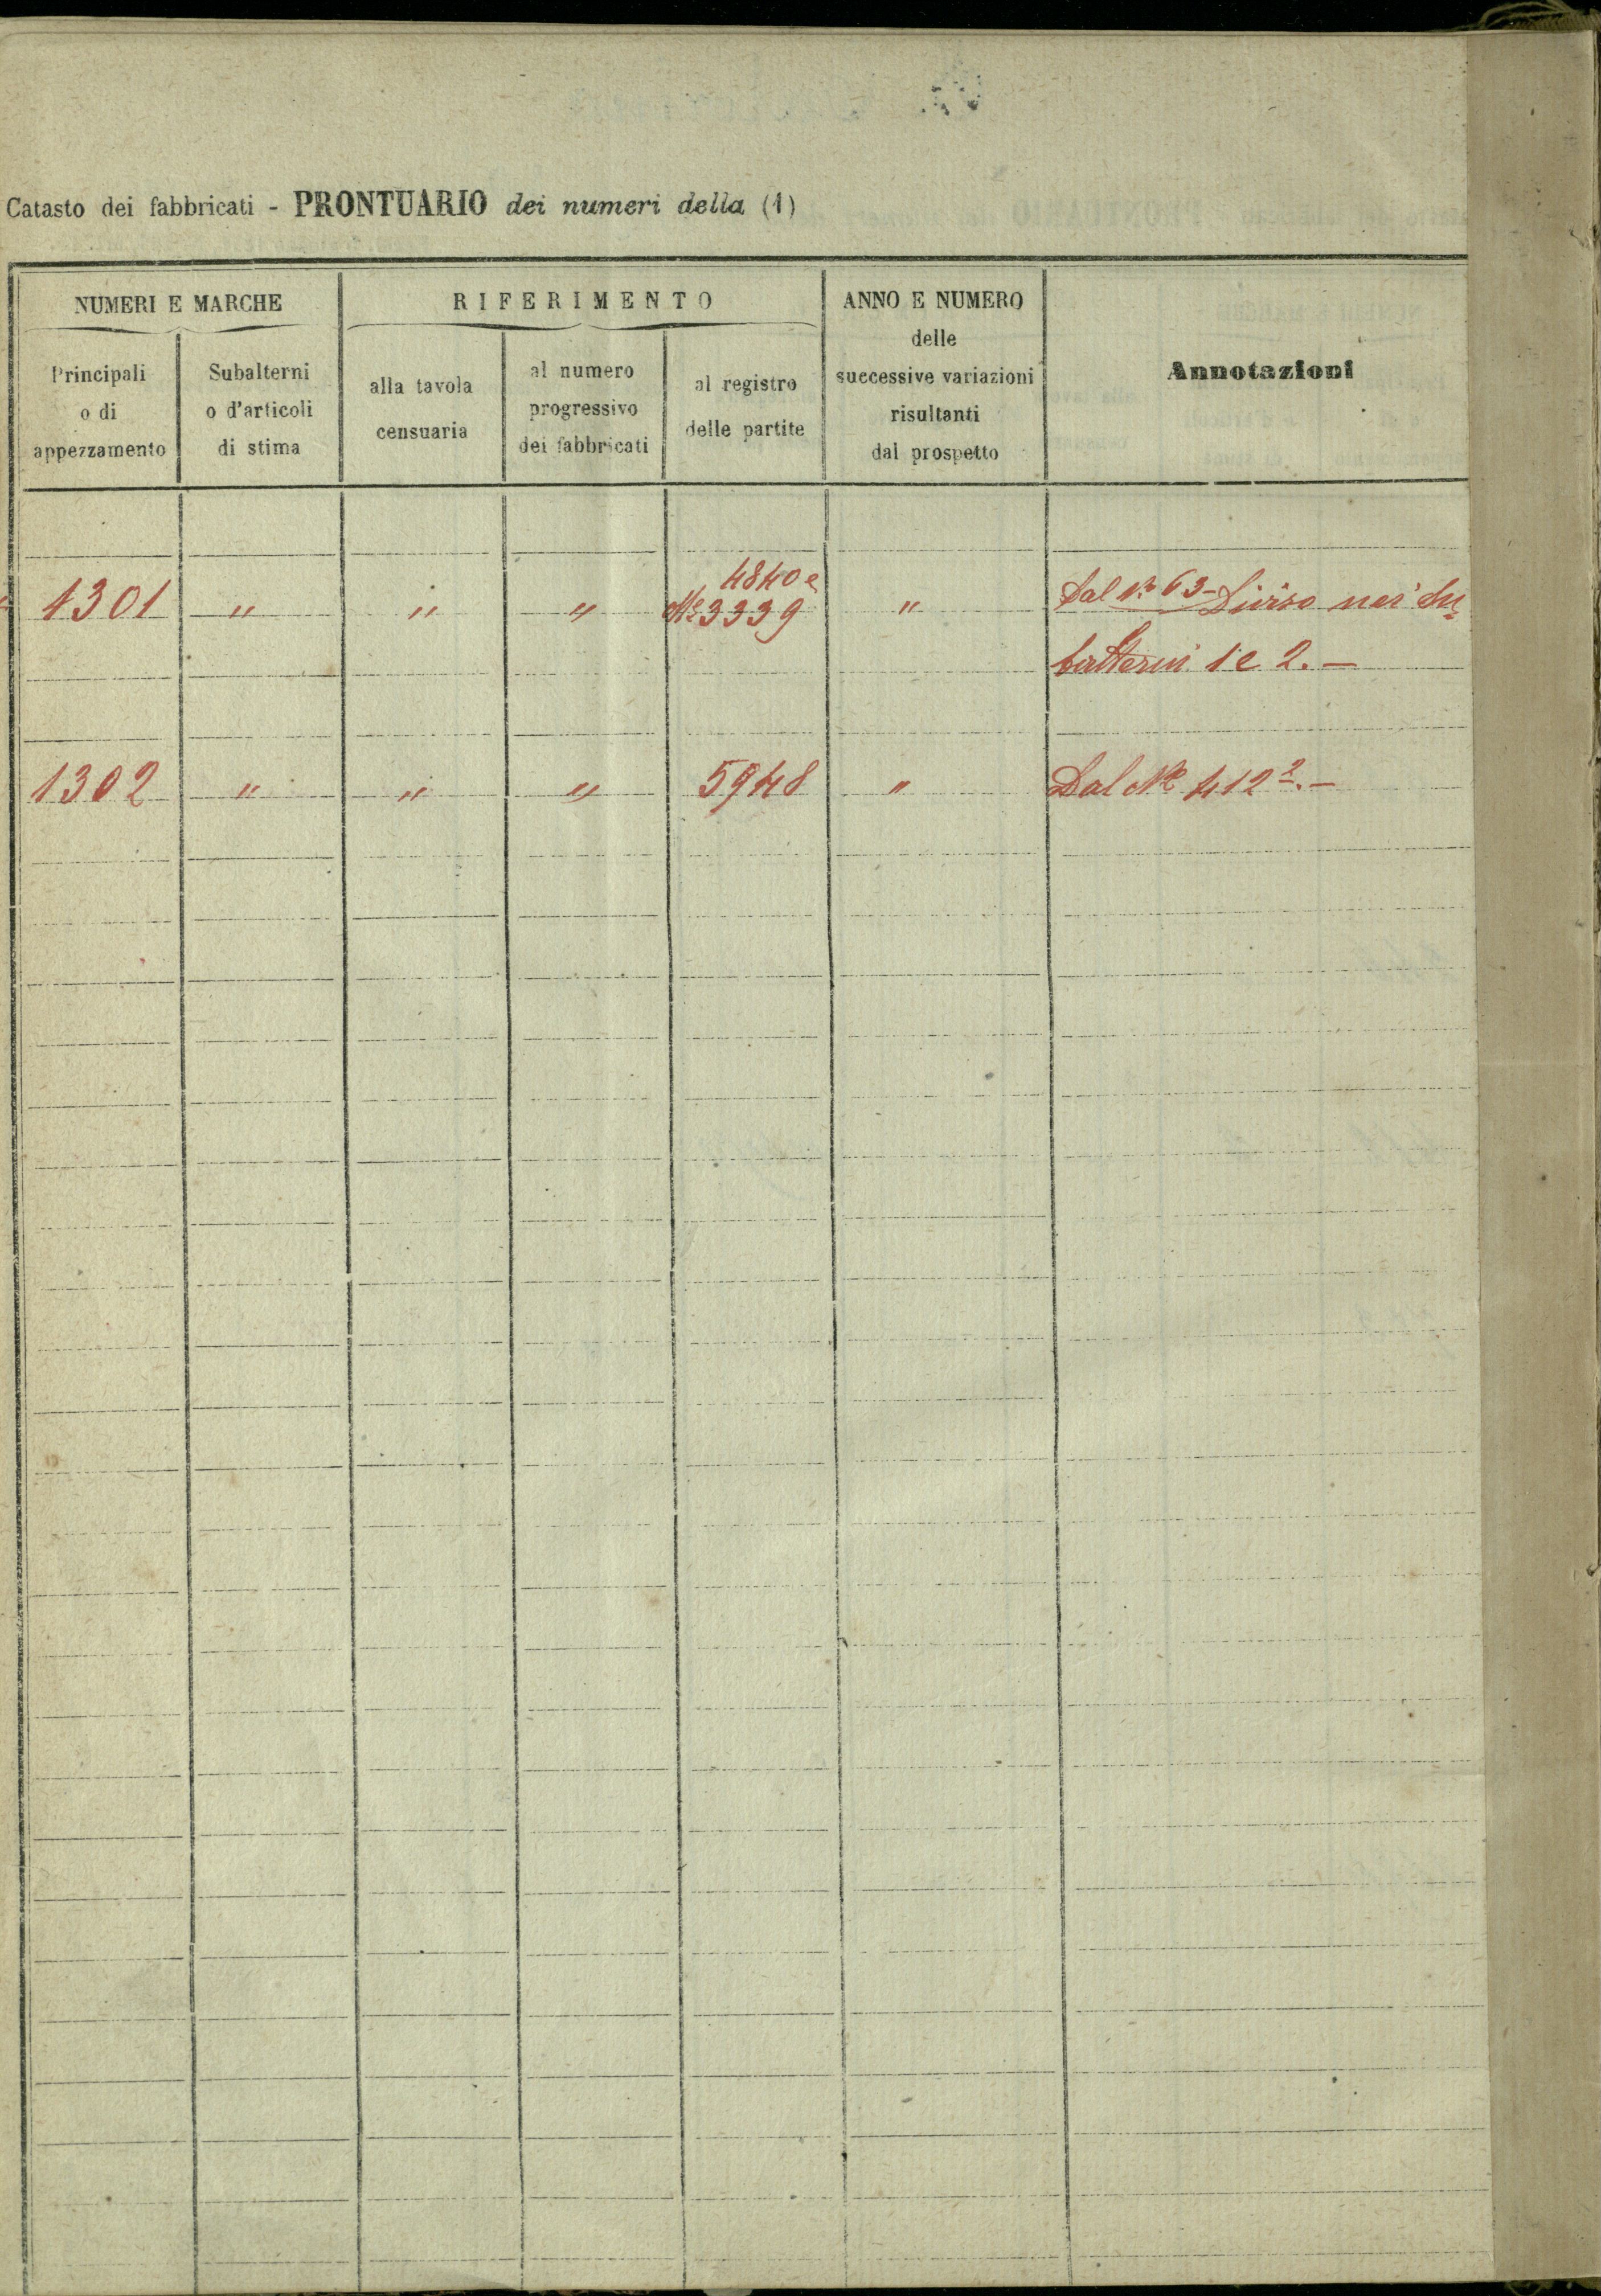 Catasto dei fabbricati - PRONTUARIO dei numeri della (1)
NUMERI E MARCHE
Principali
o di
appezzamento
Subalterni
o d'articoli
di stima
RIFERIMENTO
alla tavola
censuaria
al numero
progressivo
dei fabbricati
al registro
delle partite
ANNO E NUMERO
delle
successive variazioni
risultanti
dal prospetto
Annotazioni
4840 e
1301 " " " 3339 " Dal N.° 63 - Diviso nei Su=
balterni 1 e 2. —
1302 " " " 5948 " Dal N.° 412 2. —